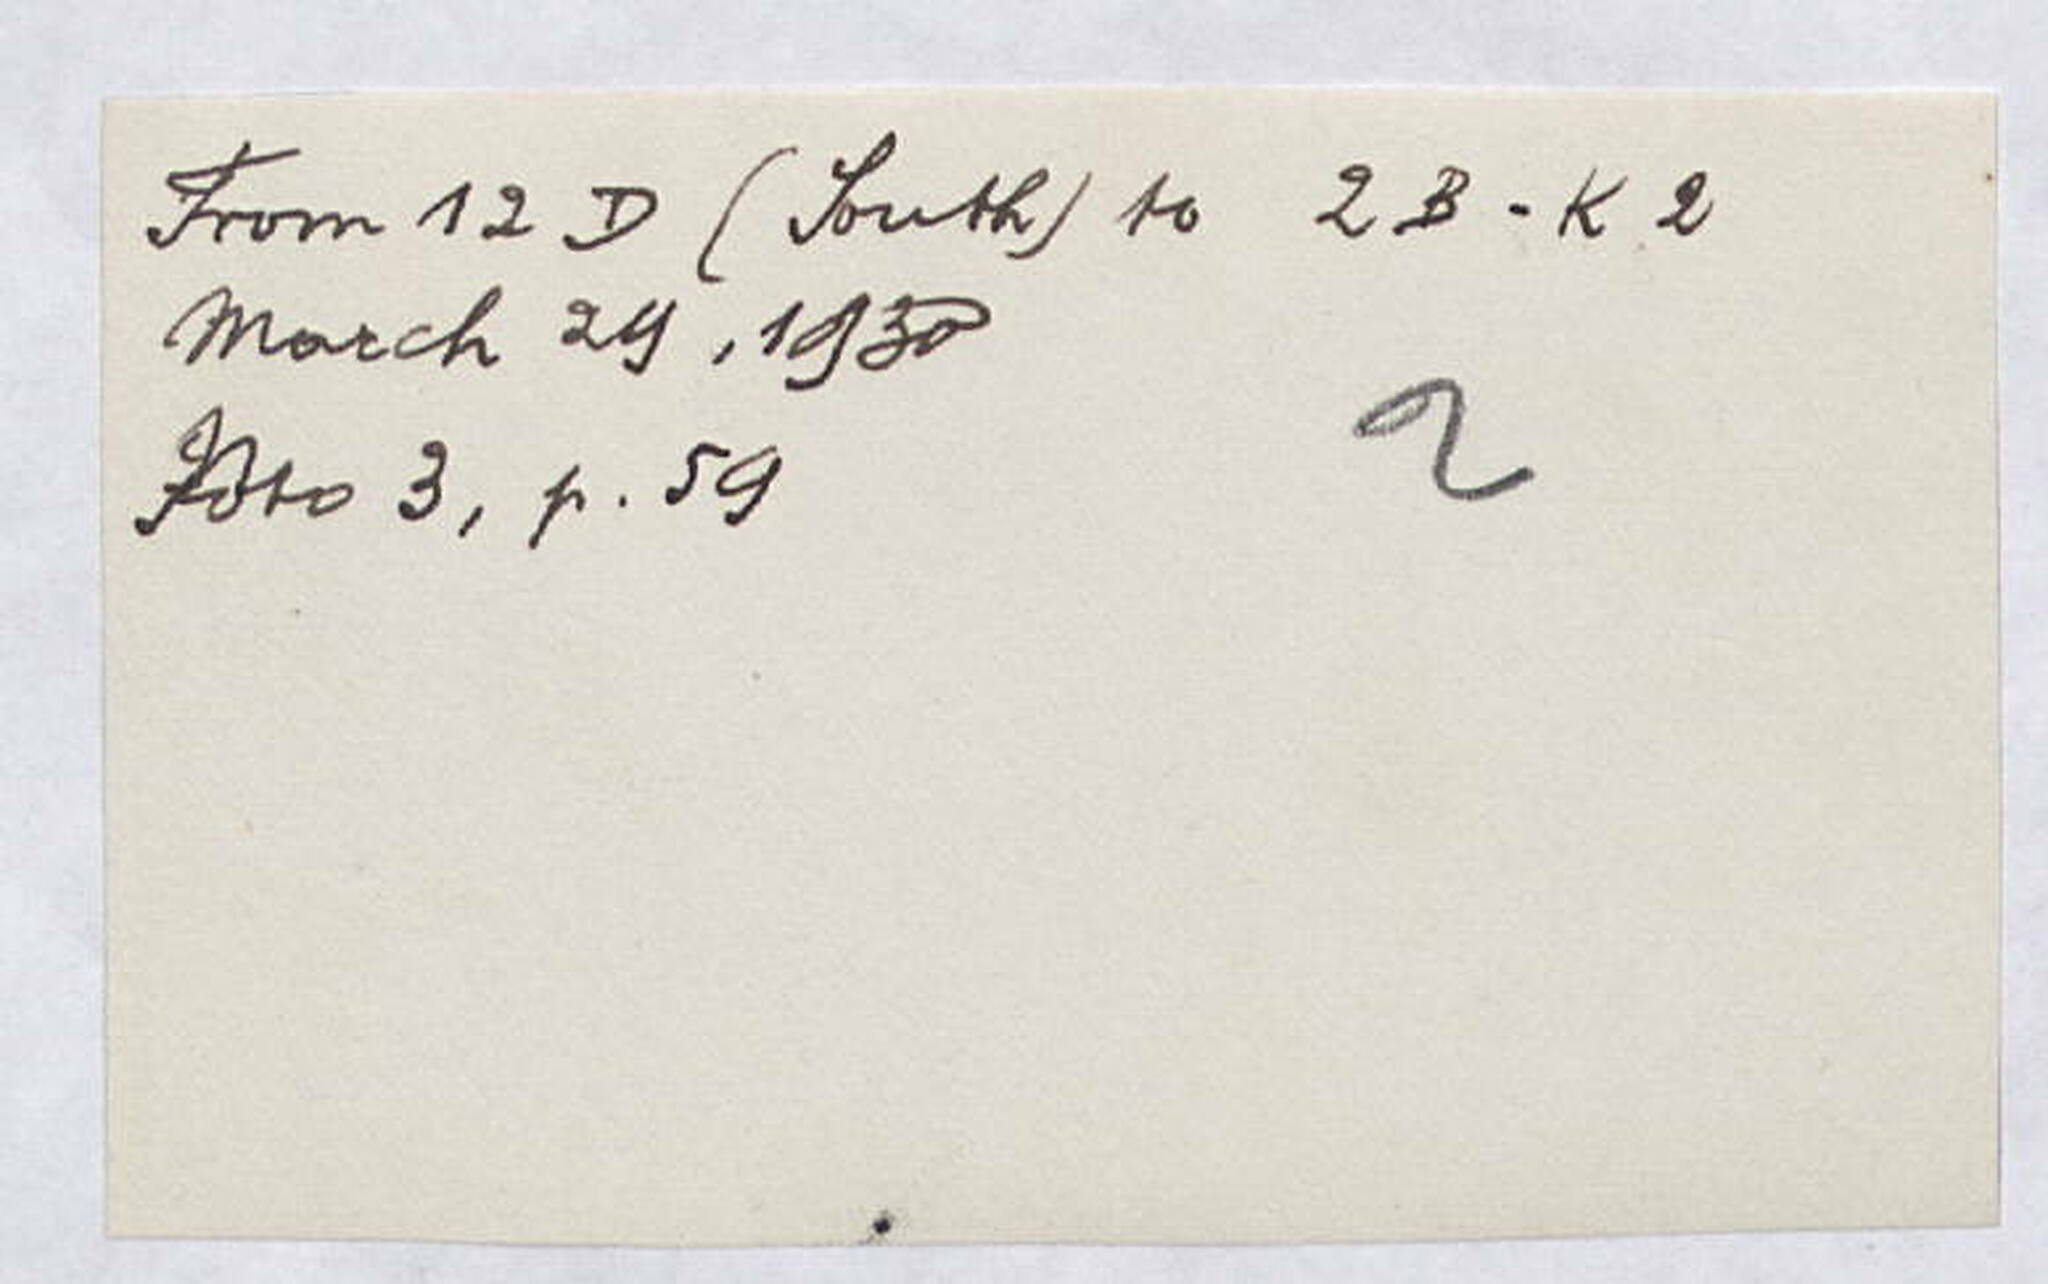 From 12 D (South) to 2 B - K 2
March 29, 1930
Foto 3, p. 59
2